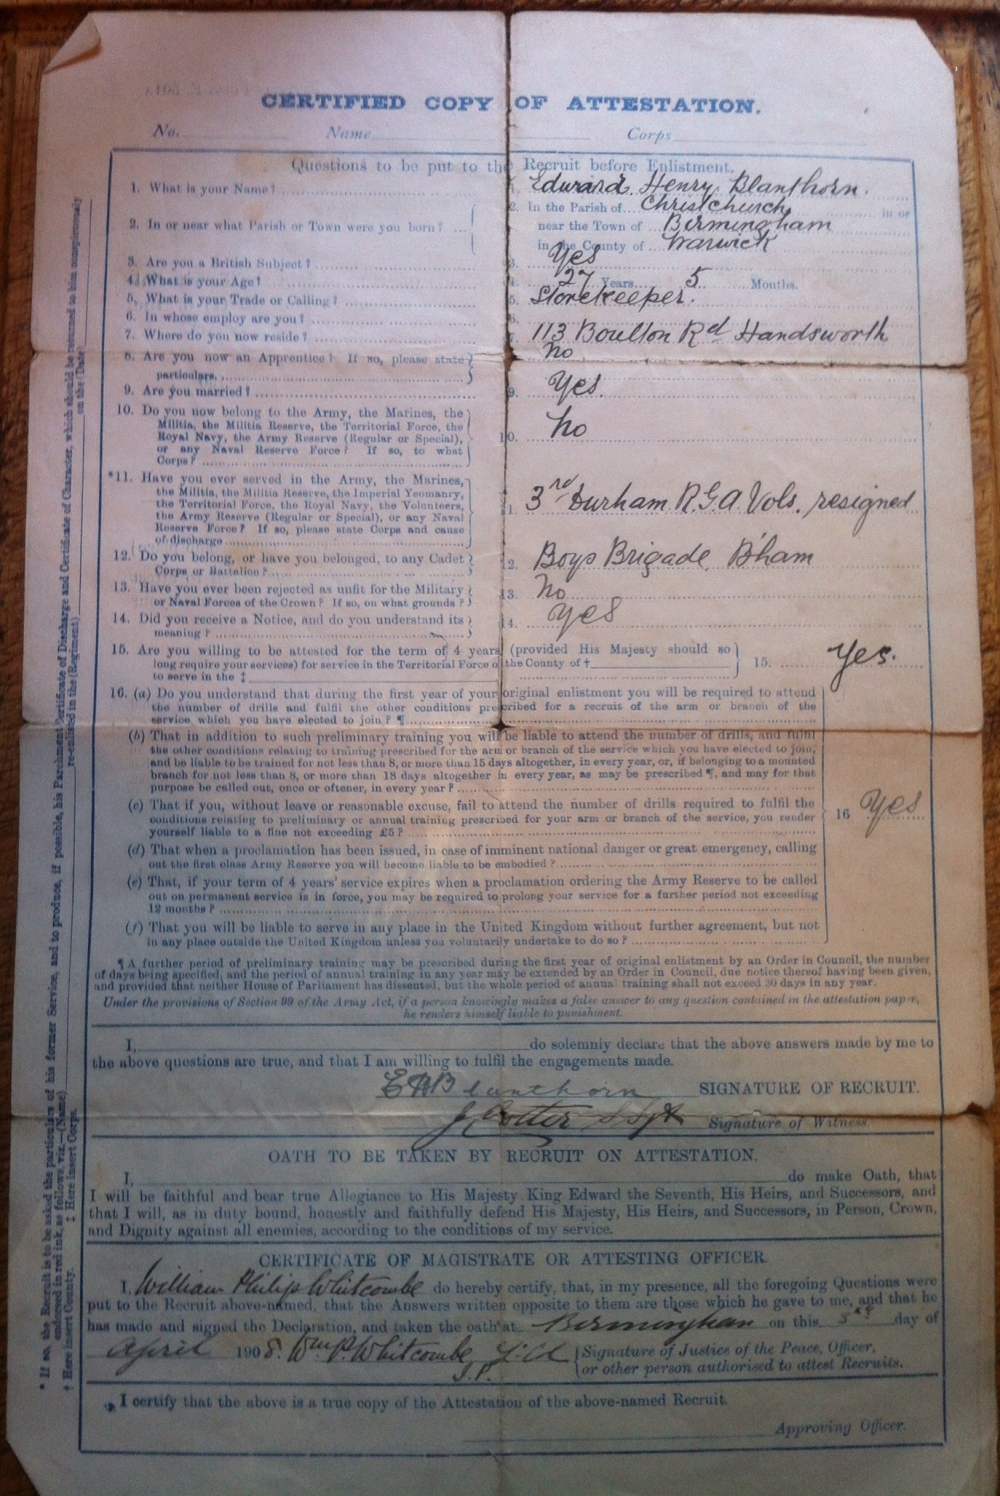 CERTIFIED COPY OF ATTESTATION.
No. Name Corps
Questions to be put to the Recruit before Enlistment.
1. What is your Name? 1. Edward Henry Blanthorn.
2. In or near what Parish or Town were you born? 2. In the Parish of Christchurch in or
near the Town of Birmingham
in the County of Warwick
3. Are you a British Subject? 3. Yes
4. What is your Age? 4. 27 Years 5 Months.
5. What is your Trade or Calling? 5. Storekeeper.
6. In whose employ are you? 6.
7. Where do you now reside? 7. 113 Boulton Rd Handsworth
8. Are you now an Apprentice? If so, please state no
particulars.
9. Are you married? 9. Yes.
10. Do you now belong to the Army, the Marines, the
Militia, the Militia Reserve, the Territorial Force, the
Royal Navy, the Army Reserve (Regular or Special),
or any Naval Reserve Force? If so, to what
Corps? 10. no
*11. Have you ever served in the Army, the Marines,
the Militia, the Militia Reserve, the Imperial Yeomanry,
the Territorial Force, the Royal Navy, the Volunteers,
the Army Reserve (Regular or Special), or any Naval
Reserve Force? If so, please state Corps and cause
of discharge 1. 3rd Durham R.G.A Vols. resigned
12. Do you belong, or have you belonged, to any Cadet
Corps or Battalion? 2. Boys Brigade, B'ham
13. Have you ever been rejected as unfit for the Military
or Naval Forces of the Crown? If so, on what grounds? 13. no
14. Did you receive a Notice, and do you understand its
meaning? 14. yes
15. Are you willing to be attested for the term of 4 years (provided His Majesty should so
long require your services) for service in the Territorial Force of the County of †
to serve in the ‡ 15. Yes.
16. (a) Do you understand that during the first year of your original enlistment you will be required to attend
the number of drills and fulfil the other conditions prescribed for a recruit of the arm or branch of the
service which you have elected to join? ¶
(b) That in addition to such preliminary training you will be liable to attend the number of drills, and fulfil
the other conditions relating to training prescribed for the arm or branch of the service which you have elected to join,
and be liable to be trained for not less than 8, or more than 15 days altogether, in every year, or, if belonging to a mounted
branch for not less than 8, or more than 18 days altogether in every year, as may be prescribed ¶, and may for that
purpose be called out, once or oftener, in every year?
(c) That if you, without leave or reasonable excuse, fail to attend the number of drills required to fulfil the
conditions relating to preliminary or annual training prescribed for your arm or branch of the service, you render
yourself liable to a fine not exceeding £5? 16 Yes
(d) That when a proclamation has been issued, in case of imminent national danger or great emergency, calling
out the first class Army Reserve you will become liable to be embodied?
(e) That, if your term of 4 years' service expires when a proclamation ordering the Army Reserve to be called
out on permanent service is in force, you may be required to prolong your service for a further period not exceeding
12 months?
(f) That you will be liable to serve in any place in the United Kingdom without further agreement, but not
in any place outside the United Kingdom unless you voluntarily undertake to do so?
¶ A further period of preliminary training may be prescribed during the first year of original enlistment by an Order in Council, the number
of days being specified, and the period of annual training in any year may be extended by an Order in Council, due notice thereof having been given,
and provided that neither House of Parliament has dissented, but the whole period of annual training shall not exceed 30 days in any year.
Under the provisions of Section 99 of the Army Act, if a person knowingly makes a false answer to any question contained in the attestation paper,
he renders himself liable to punishment.
I, do solemnly declare that the above answers made by me to
the above questions are true, and that I am willing to fulfil the engagements made.
E H Blanthorn SIGNATURE OF RECRUIT.
J Cotter S Sgt Signature of Witness.
OATH TO BE TAKEN BY RECRUIT ON ATTESTATION.
I, do make Oath, that
I will be faithful and bear true Allegiance to His Majesty King Edward the Seventh, His Heirs, and Successors, and
that I will, as in duty bound, honestly and faithfully defend His Majesty, His Heirs, and Successors, in Person, Crown,
and Dignity against all enemies, according to the conditions of my service.
CERTIFICATE OF MAGISTRATE OR ATTESTING OFFICER.
I, William Philip Whitcombe do hereby certify, that, in my presence, all the foregoing Questions were
put to the Recruit above-named, that the Answers written opposite to them are those which he gave to me, and that he
has made and signed the Declaration, and taken the oath at Birmingham on this day of
April 1908. Wm P. Whitcombe Signature of Justice of the Peace, Officer,
J.P. or other person authorised to attest Recruits.
I certify that the above is a true copy of the Attestation of the above-named Recruit.
Approving Officer.
* If so, the Recruit is to be asked the particulars of his former Service, and to produce, if possible, his Parchment Certificate of Discharge and Certificate of Character, which should be returned to him conspicuously
endorsed in red ink, as follows, viz.—(Name) re-enlisted in the (Regiment) on the (Date)
† Here insert County. ‡ Here insert Corps.